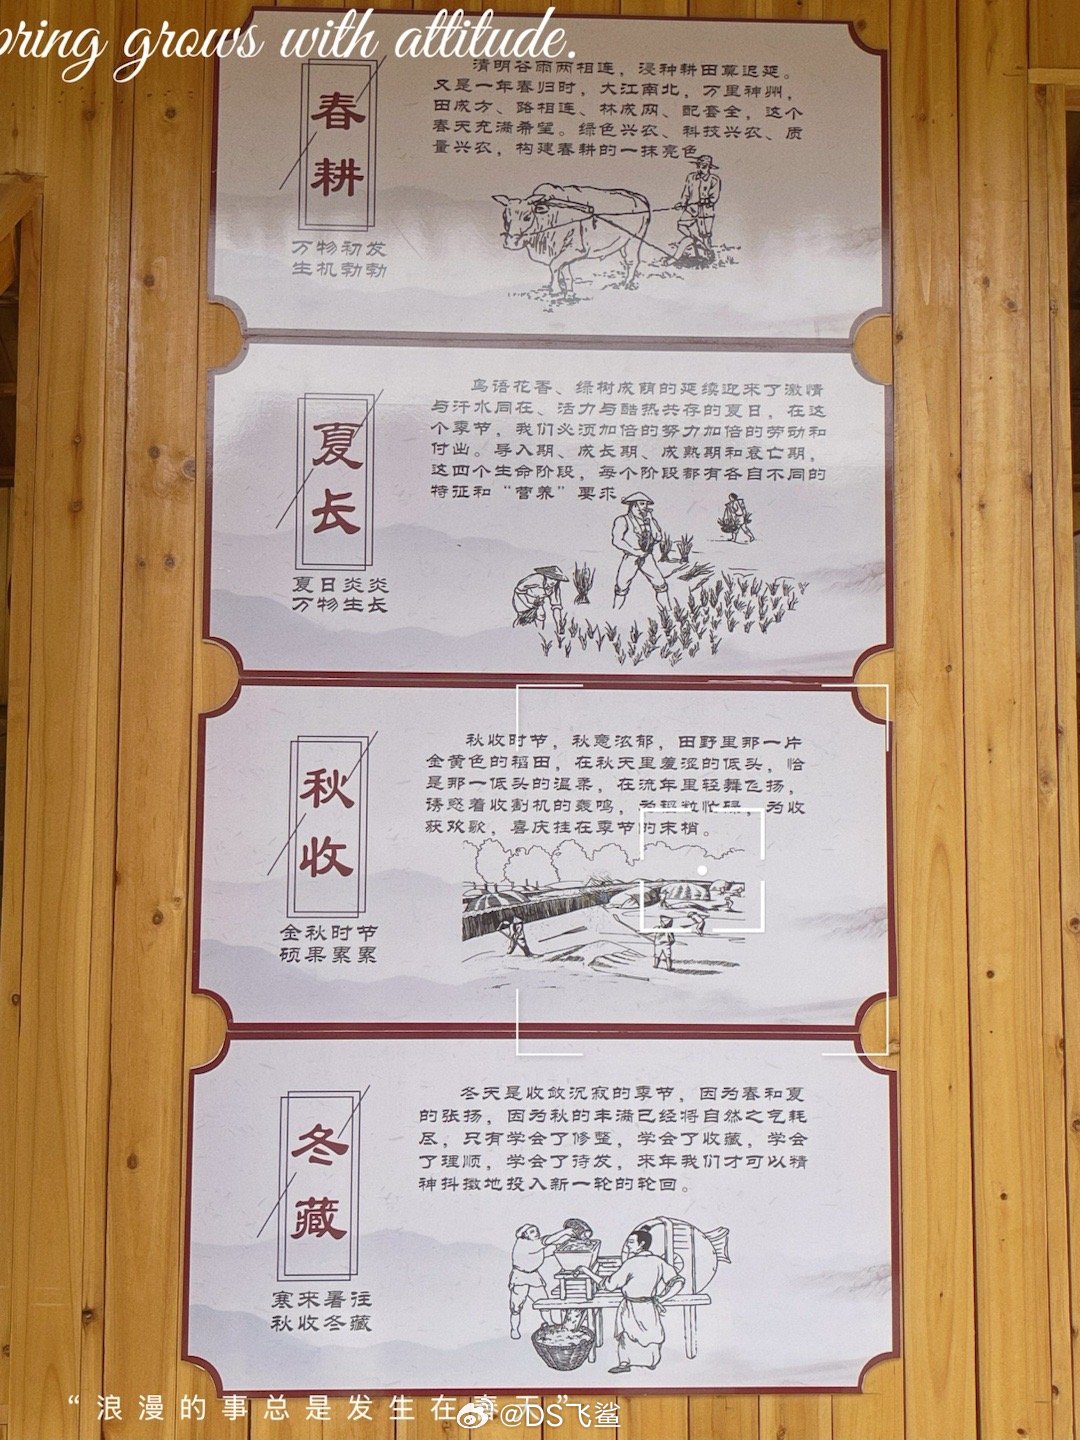 pring grows with attitude.
春耕
万物初发
生机勃勃
清明谷雨两相连，浸种耕田莫迟延。
又是一年春归时，大江南北，万里神州，
田成方、路相连、林成网、配套全，这个
春天充满希望。绿色兴农、科技兴农、质
量兴农，构建春耕的一抹亮色
夏长
夏日炎炎
万物生长
鸟语花香、绿树成荫的延续迎来了激情
与汗水同在、活力与酷热共存的夏日，在这
个季节，我们必须加倍的努力加倍的劳动和
付出。导入期、成长期、成熟期和衰亡期，
这四个生命阶段，每个阶段都有各自不同的
特征和“营养”要求
秋收
金秋时节
硕果累累
秋收时节，秋意浓郁，田野里那一片
金黄色的稻田，在秋天里羞涩的低头，恰
是那一低头的温柔，在流年里轻舞飞扬，
诱惑着收割机的轰鸣，为稻粒忙碌，为收
获欢歌，喜庆挂在季节的末梢。
冬藏
寒来暑往
秋收冬藏
冬天是收敛沉寂的季节，因为春和夏
的张扬，因为秋的丰满已经将自然之气耗
尽，只有学会了修整，学会了收藏，学会
了理顺，学会了待发，来年我们才可以精
神抖擞地投入新一轮的轮回。
“浪漫的事总是发生在春天”
@DS飞鲨